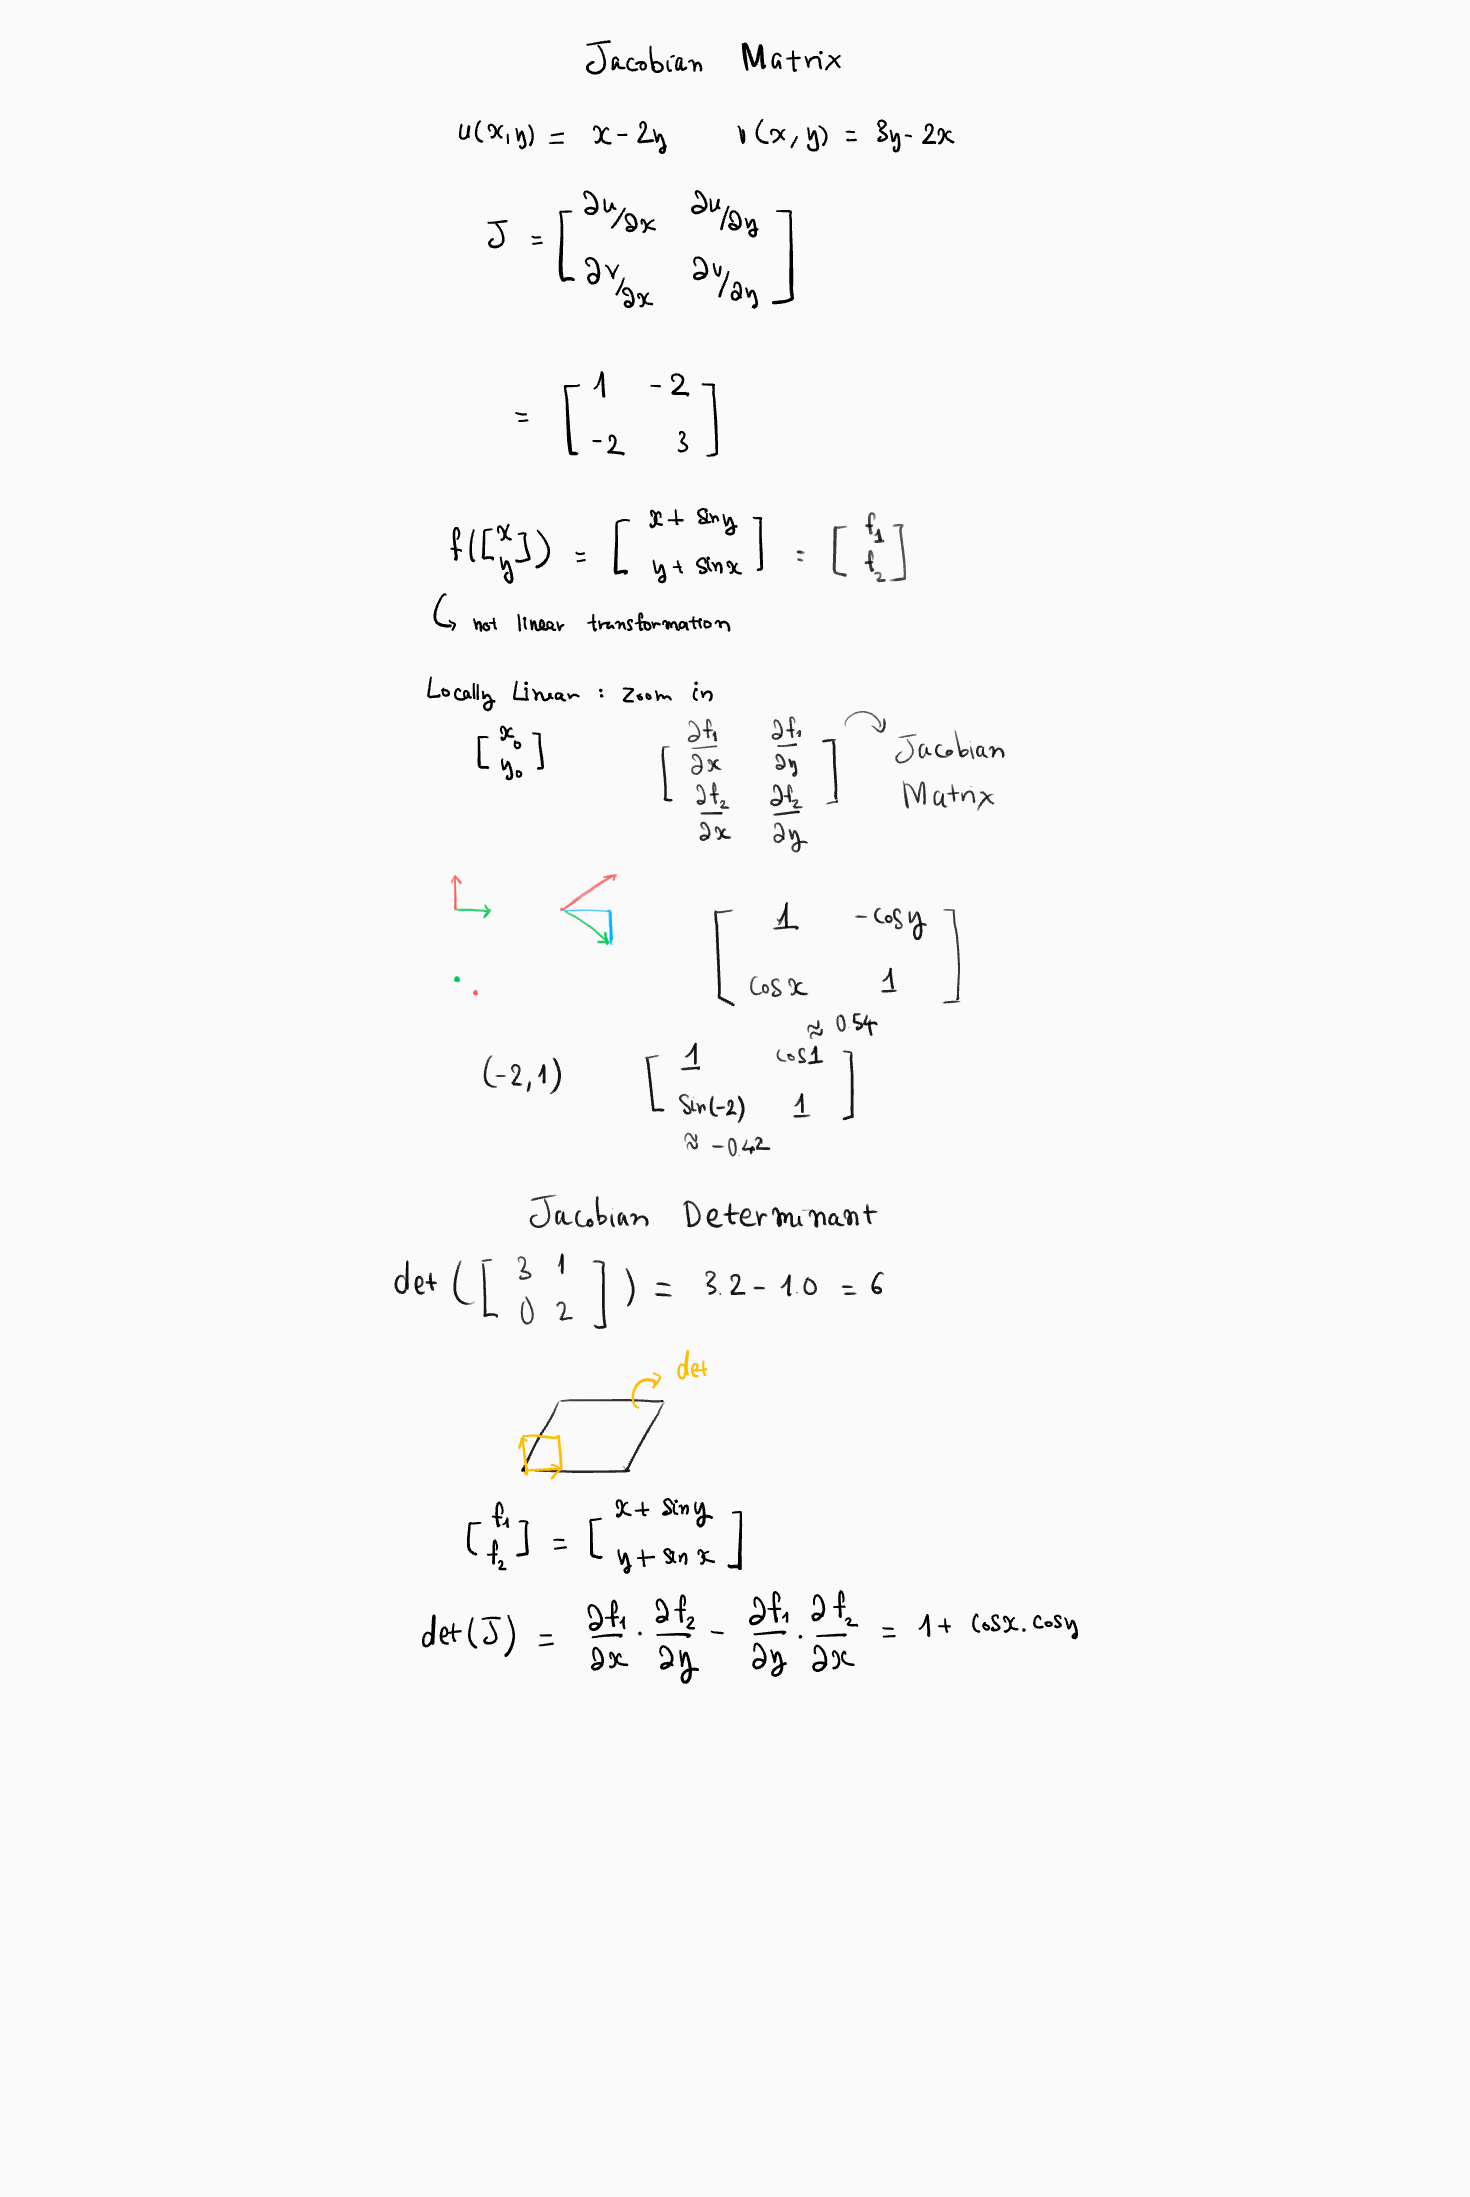 Jacobian Matrix
u(x,y) = x - 2y    v(x,y) = 3y - 2x
J = [ ∂u/∂x  ∂u/∂y
∂v/∂x  ∂v/∂y ]
= [ 1  -2
-2  3 ]
f([ x y ]) = [ x + sin y
y + sin x ] = [ f₁ f₂ ]
↳ not linear transformation
Locally Linear : Zoom in
[ x₀ y₀ ]
[ ∂f₁/∂x  ∂f₁/∂y
∂f₂/∂x  ∂f₂/∂y ]
Jacobian
Matrix
[ 1  -cos y
cos x  1 ]
≈ 0.54
(-2,1)    [ 1  cos 1
Sin(-2)  1 ]
≈ -0.42
Jacobian Determinant
det ([ 3 1
0 2 ]) = 3.2 - 1.0 = 6
det
[ f₁ f₂ ] = [ x + sin y
y + sin x ]
det(J) = ∂f₁/∂x · ∂f₂/∂y - ∂f₁/∂y · ∂f₂/∂x = 1 + cosx.cosy